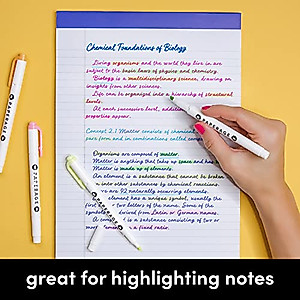 Chemical Foundations of Biology
Living organisms and the world they live in are
subject to the basic laws of physics and chemistry.
Biology is a multidisciplinary science, drawing on
insights from other sciences.
Life can be organized into a hierarchy of structural
levels.
At each successive level, additional
properties appear.
Concept 2.1 Matter consists of chemical
pure form and in combinations called compounds
Organisms are composed of matter.
Matter is anything that takes up space and has
Matter is made up of elements.
An element is a substance that cannot be broken
into other substances by chemical reactions.
are 92 naturally occurring elements.
element has a unique symbol, usually the
first or two letters of the name. Some of the
symbols derived from Latin or German names.
is a substance consisting of two or
more in a fixed ratio.
PAPERAGE
PAPERAGE
PAPERAGE
great for highlighting notes